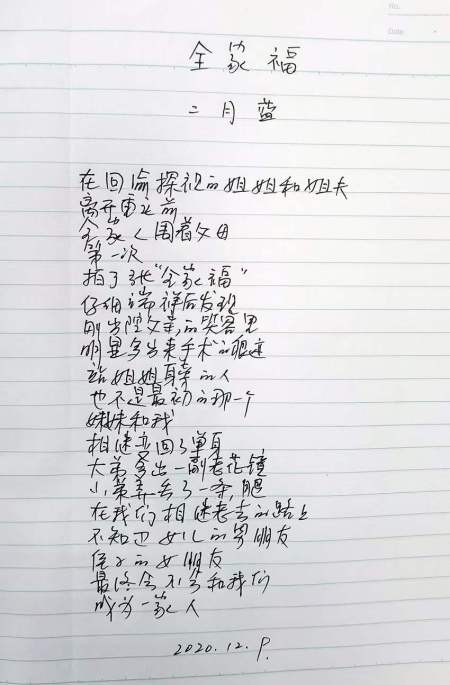 No.
Date
全家福
二月蓝
在回渝探视的姐姐和姐夫
离开重庆前
全家人围着父母
第一次
拍了张“全家福”
仔细端祥后发现
刚出院父亲的笑容里
明显多出来手术的痕迹
站姐姐身旁的人
也不是最初的那一个
妹妹和我
相继变回了单身
大弟多出一副老花镜
小弟弄丢了一条腿
在我们相继老去的路上
不知道女儿的男朋友
侄儿的女朋友
最终会不会和我们
成为一家人
2020.12.9.